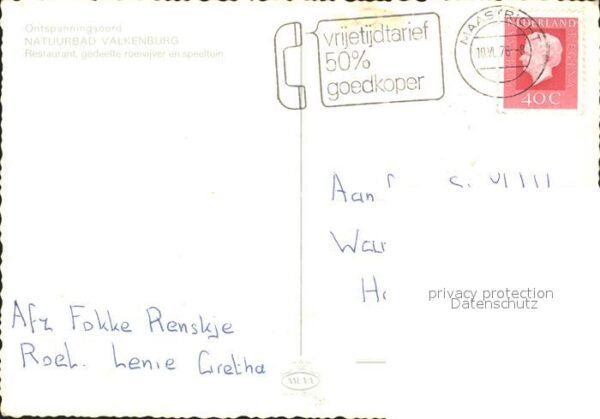 Ontspanningsoord
NATUURBAD VALKENBURG
Restaurant, gedeelte roeivijver en speeltuin
vrijetijdtarief
50%
goedkoper
NEDERLAND
40 C
Aan
privacy protection
Datenschutz
Afz Fokke Renskje
Roel. Lenie Gretha